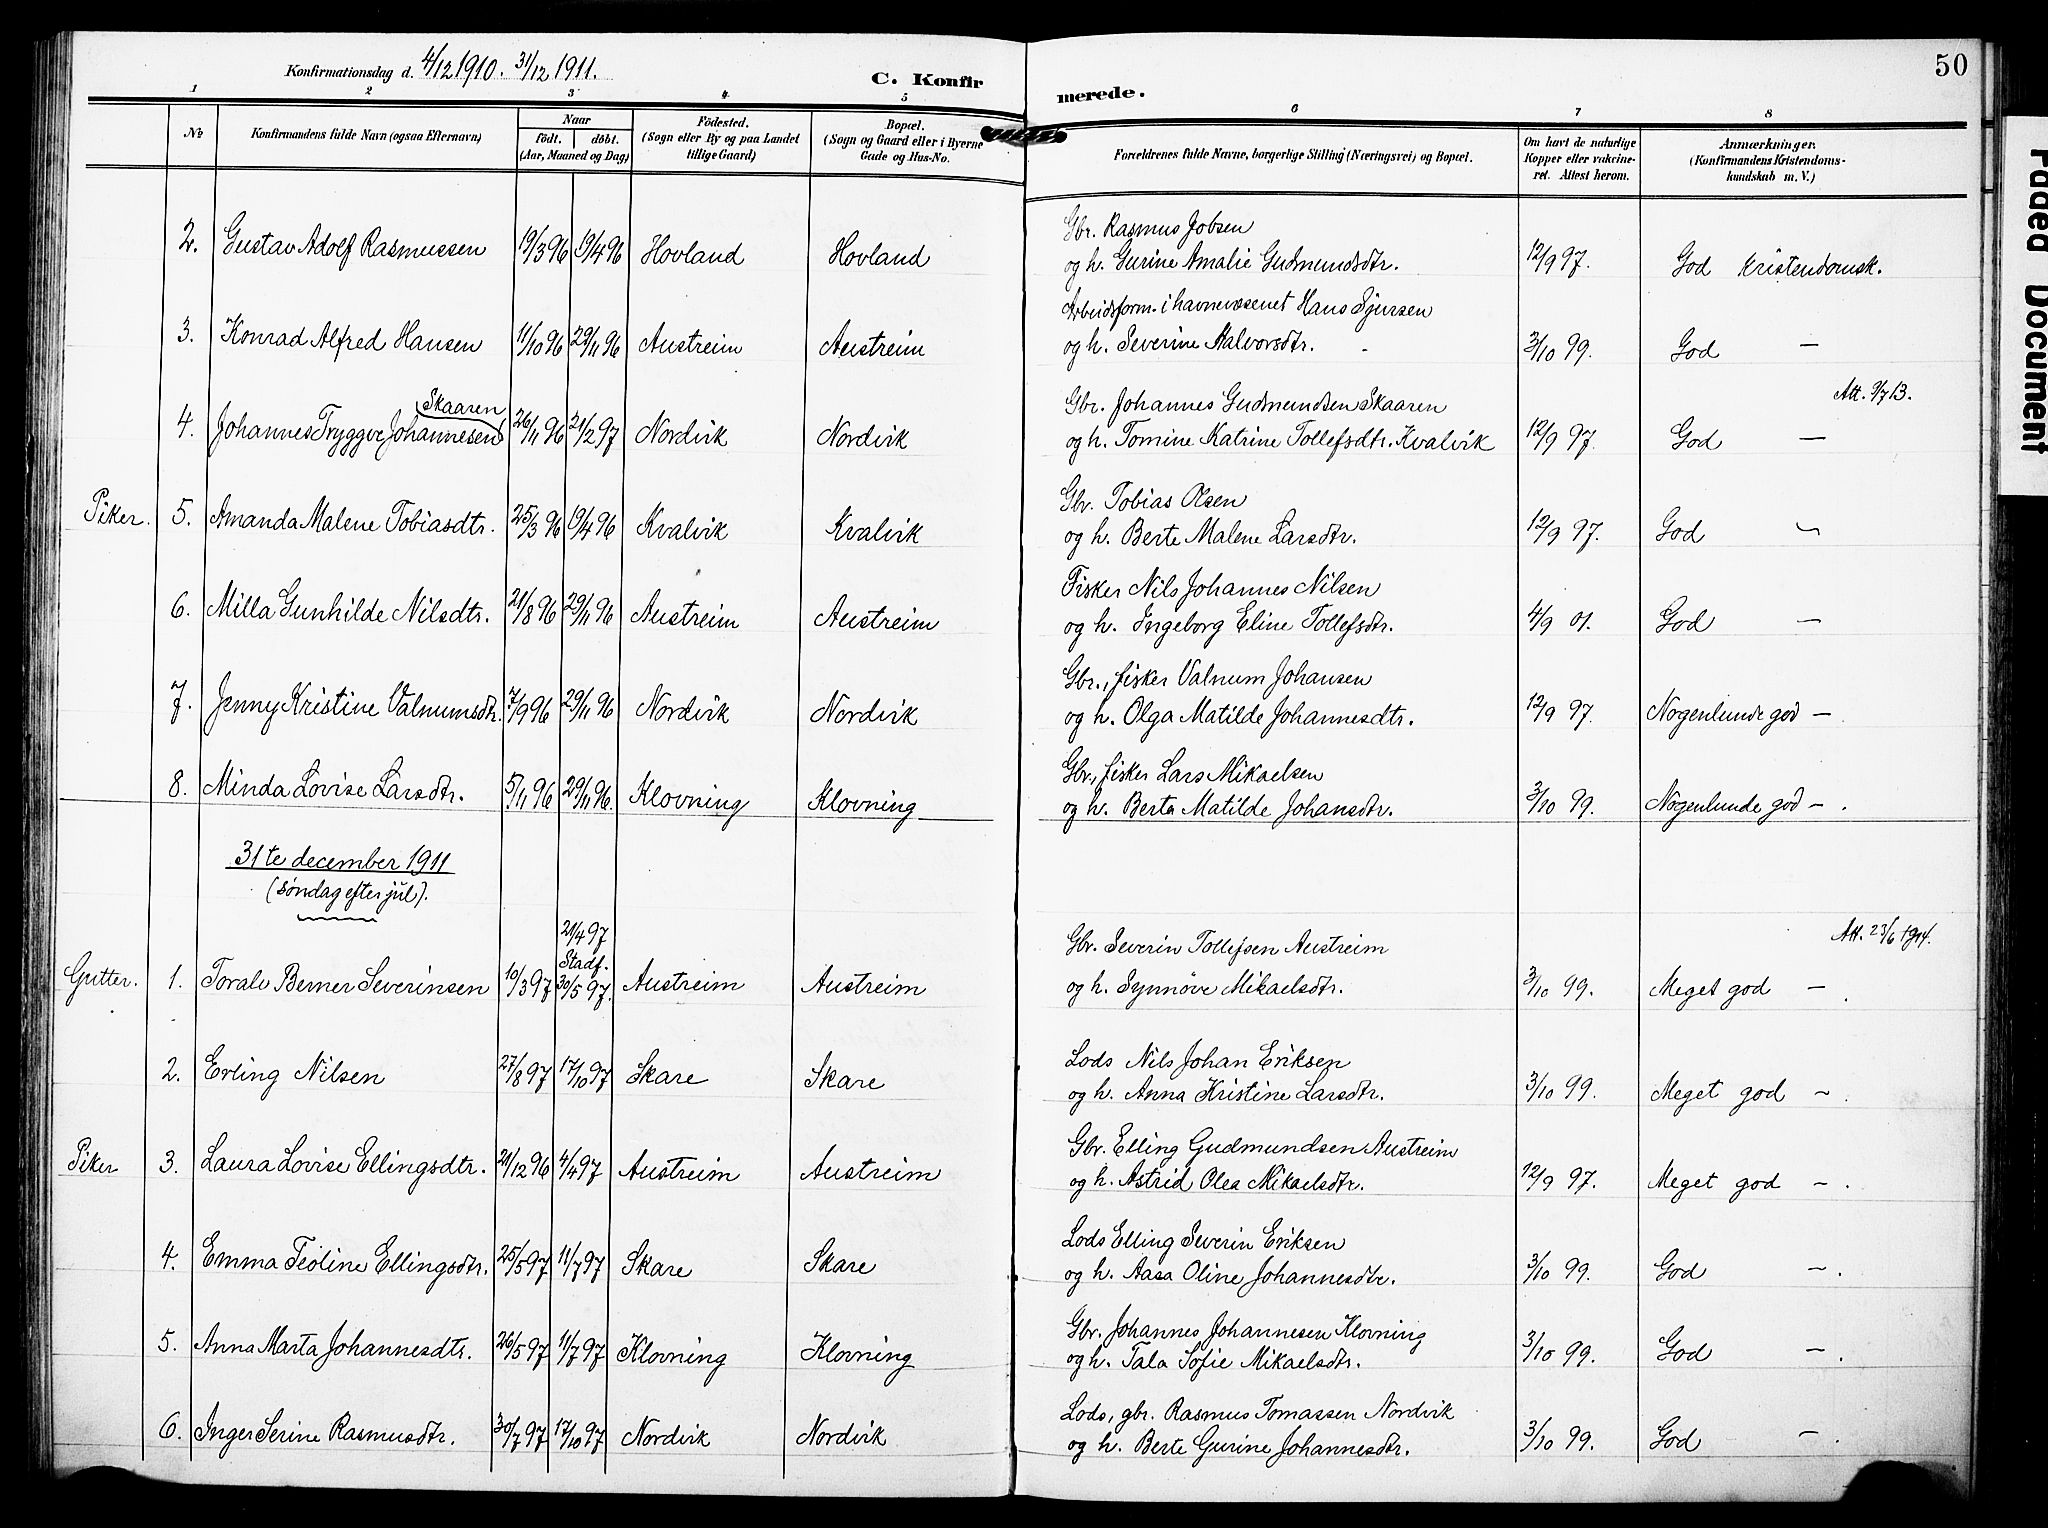 Konfirmationsdag d. 4/12 1910. 31/12 1911.
C. Konfirmerede.
50
1 2 3 4 5 6 7 8
No
Konfirmandens fulde Navn (ogsaa Efternavn)
Naar
født. døbt.
(Aar, Maaned og Dag)
Fødested.
(Sogn eller By og paa Landet
tillige Gaard)
Bopæl.
(Sogn og Gaard eller i Byerne
Gade og Hus-No.
Forældrenes fulde Navne, borgerlige Stilling (Næringsvei) og Bopæl.
Om havt de naturlige
Kopper eller vakcine-
ret. Attest herom.
Anmærkninger.
(Konfirmandens Kristendoms-
kundskab m. V.)
Gbr. Rasmus Jobsen
2. Gustav Adolf Rasmussen 19/3 96 19/4 96 Hovland Hovland og h. Gurine Amalie Gudmundsdtr. 12/9 97. God Kristendomsk.
Arbeidsform. i havnevæsenet Hans Sjursen
3. Konrad Alfred Hansen 11/10 96 29/11 96 Austreim Austreim og h. Severine Halvorsdtr. 3/10 99. God —
Skaaren Gbr. Johannes Gudmundsen Skaaren Att. 9/7 13.
4. Johannes Tryggve Johannesen 26/11 96 21/2 97 Nordvik Nordvik og h. Tomine Katrine Tollefsdtr. Kvalvik 12/9 97. God —
Gbr. Tobias Olsen
Piker. 5. Amanda Malene Tobiasdtr. 25/3 96 19/4 96 Kvalvik Kvalvik og h. Berte Malene Larsdtr. 12/9 97. God —
Fisker Nils Johannes Nilsen
6. Milla Gunhilde Nilsdtr. 21/8 96 29/11 96 Austreim Austreim og h. Ingeborg Eline Tollefsdtr. 4/9 01. God —
Gbr., fisker Valnum Johansen
7. Jenny Kristine Valnumsdtr. 7/9 96 29/11 96 Nordvik Nordvik og h. Olga Matilde Johannesdtr. 12/9 97. Nogenlunde god —
Gbr., fisker Lars Mikaelsen
8. Minda Lovise Larsdtr. 5/11 96 29/11 96. Klovning Klovning og h. Berta Matilde Johansdtr. 3/10 99. Nogenlunde god — .
31te december 1911
(søndag efter jul).
21/4 97 Gbr. Severin Tollefsen Austreim Att. 23/6 1914.
Stadf.
Gutter. 1. Torale Berner Severinsen 10/3 97 30/5 97. Austreim Austreim og h. Synnøve Mikaelsdtr. 3/10 99. Meget god — .
Lods Nils Johan Eriksen
2. Erling Nilsen 27/8 97 17/10 97 Skare Skare og h. Anna Kristine Larsdtr. 3/10 99. Meget god — .
Gbr. Elling Gudmundsen Austreim
Piker 3. Laura Lovise Ellingsdtr. 21/12 96 4/4 97 Austreim Austreim og h. Astrid Olea Mikaelsdtr. 12/9 97. Meget god — .
Lods Elling Severin Eriksen
4. Emma Teoline Ellingsdtr. 25/5 97 11/7 97 Skare Skare og h. Aasa Oline Johannesdtr. 3/10 99. God — .
Gbr. Johannes Johannesen Klovning
5. Anna Marta Johannesdtr. 26/5 97 11/7 97 Klovning Klovning og h. Tala Sofie Mikaelsdtr. 3/10 99. God — .
Lods, gbr. Rasmus Tomassen Nordvik
6. Inger Serine Rasmusdtr. 30/7 97 17/10 97 Nordvik Nordvik og h. Berte Gurine Johannesdtr. 3/10 99. God — .
Faded Document